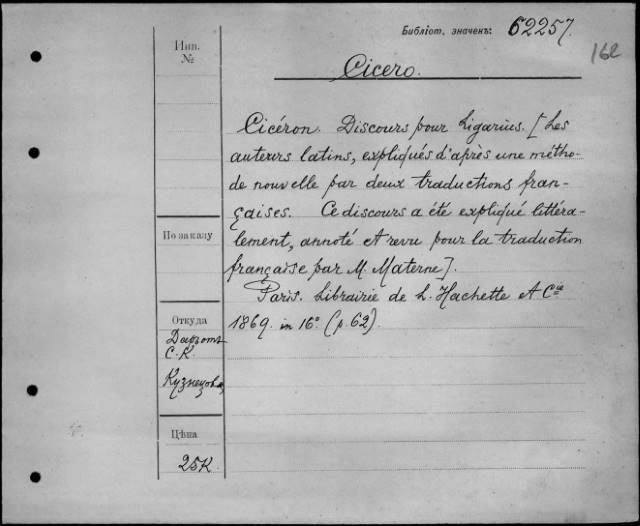 Библіот. значенъ: 62257.
162
Инв.
№
Cicero.
Cicéron. Discours pour Ligarius. [Les
auteurs latins, expliqués d'après une métho-
de nouvelle par deux traductions fran-
çaises. Ce discours a été expliqué littéra-
lement, annoté et revu pour la traduction
française par M. Materne].
Paris. Librairie de L. Hachette et Cie
1869. in 16° (p. 62).
По заказу
Откуда
Даромъ
С. К.
Кузнецова
Цѣна
25 К.